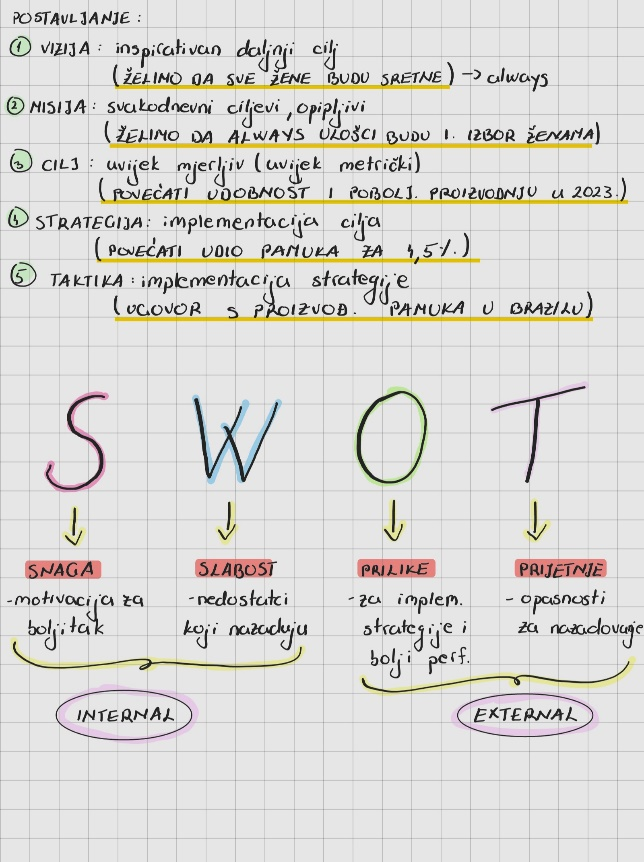 POSTAVLJANJE:
1 VIZIJA: inspirativan daljnji cilj
(ŽELIMO DA SVE ŽENE BUDU SRETNE) → always
2 MISIJA: svakodnevni ciljevi, opipljivi
(ŽELIMO DA ALWAYS ULOŠCI BUDU 1. IZBOR ŽENAMA)
3 CILJ: uvijek mjerljiv (uvijek metrički)
(POVEĆATI UDOBNOST I POBOLJ. PROIZVODNJU u 2023.)
4 STRATEGIJA: implementacija cilja
(POVEĆATI UDIO PAMUKA ZA 4,5%.)
5 TAKTIKA: implementacija strategije
(UGOVOR S PROIZVOĐ. PAMUKA U BRAZILU)
S W O T
SNAGA SLABOST PRILIKE PRIJETNJE
-motivacija za -nedostatci -za implem. - opasnosti
boljitak koji nazaduju strategije i za nazadovanje
bolji perf.
INTERNAL EXTERNAL